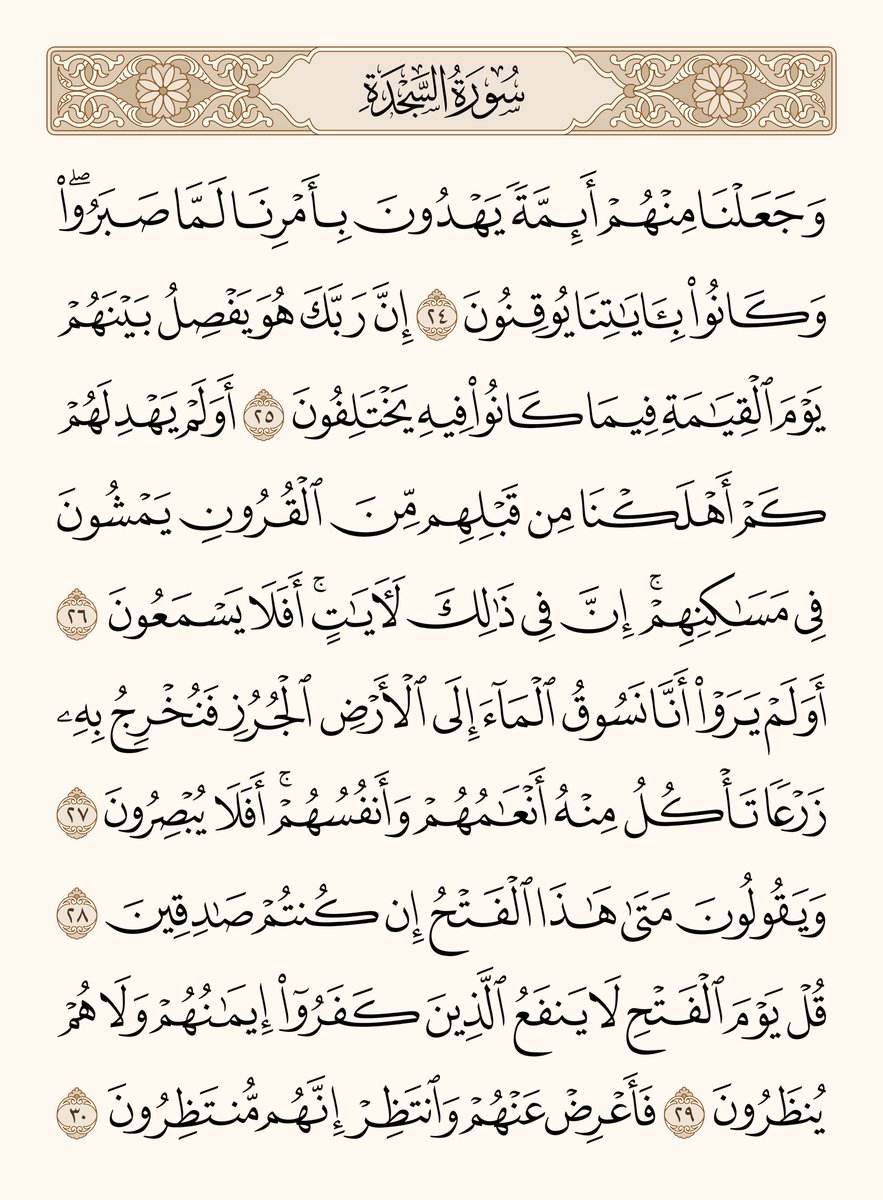 سُورَةُ السَّجْدَةِ
وَجَعَلْنَا مِنْهُمْ أَئِمَّةً يَهْدُونَ بِأَمْرِنَا لَمَّا صَبَرُوا۟ۖ
وَكَانُوا۟ بِـَٔايَٰتِنَا يُوقِنُونَ ٢٤ إِنَّ رَبَّكَ هُوَ يَفْصِلُ بَيْنَهُمْ
يَوْمَ ٱلْقِيَٰمَةِ فِيمَا كَانُوا۟ فِيهِ يَخْتَلِفُونَ ٢٥ أَوَلَمْ يَهْدِ لَهُمْ
كَمْ أَهْلَكْنَا مِن قَبْلِهِم مِّنَ ٱلْقُرُونِ يَمْشُونَ
فِى مَسَٰكِنِهِمْۚ إِنَّ فِى ذَٰلِكَ لَـَٔايَٰتٍۚ أَفَلَا يَسْمَعُونَ ٢٦
أَوَلَمْ يَرَوْا۟ أَنَّا نَسُوقُ ٱلْمَآءَ إِلَى ٱلْأَرْضِ ٱلْجُرُزِ فَنُخْرِجُ بِهِۦ
زَرْعًا تَأْكُلُ مِنْهُ أَنْعَٰمُهُمْ وَأَنفُسُهُمْۚ أَفَلَا يُبْصِرُونَ ٢٧
وَيَقُولُونَ مَتَىٰ هَٰذَا ٱلْفَتْحُ إِن كُنتُمْ صَٰدِقِينَ ٢٨
قُلْ يَوْمَ ٱلْفَتْحِ لَا يَنفَعُ ٱلَّذِينَ كَفَرُوٓا۟ إِيمَٰنُهُمْ وَلَا هُمْ
يُنظَرُونَ ٢٩ فَأَعْرِضْ عَنْهُمْ وَٱنتَظِرْ إِنَّهُم مُّنتَظِرُونَ ٣٠